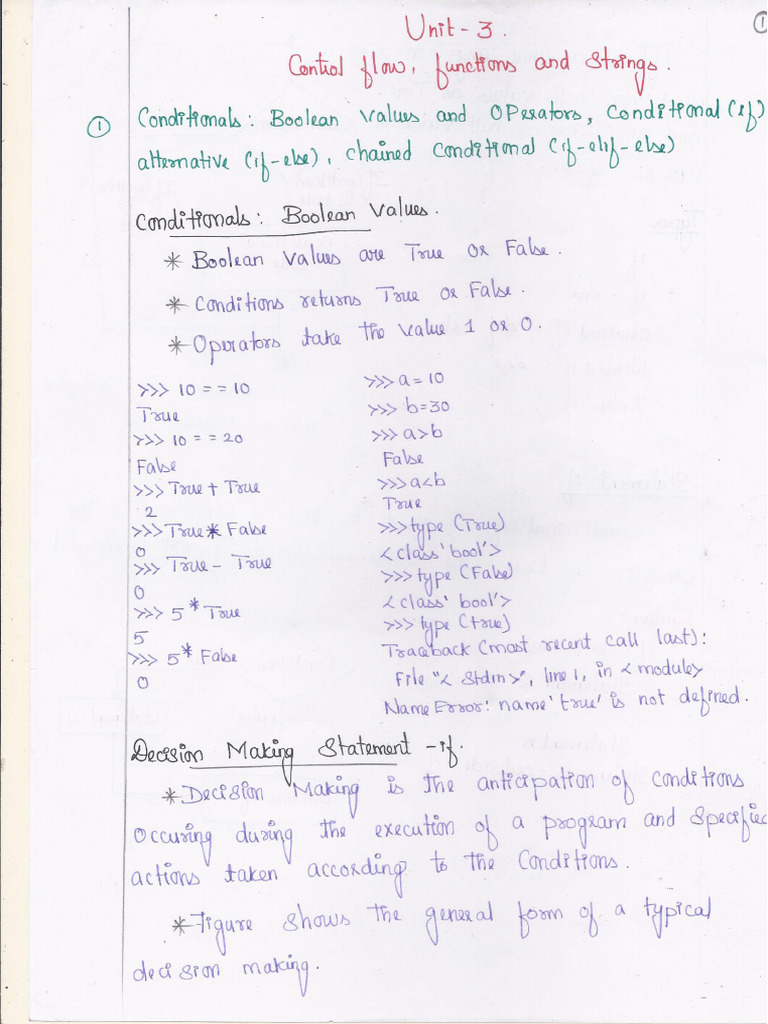 1
Unit - 3.
Control flow, functions and Strings.
1 Conditionals: Boolean Values and Operators, Conditional (if)
alternative (if-else), Chained Conditional (if-elif-else)
Conditionals: Boolean Values.
* Boolean Values are True or False.
* Conditions returns True or False.
* Operators take the value 1 or 0.
>>> 10 == 10
True
>>> 10 == 20
False
>>> True + True
2
>>> True * False
0
>>> True - True
0
>>> 5 * True
5
>>> 5 * False
0
>>> a = 10
>>> b = 30
>>> a > b
False
>>> a < b
True
>>> type (True)
< class 'bool'>
>>> type (False)
< class 'bool'>
>>> type (true)
Traceback (most recent call last):
File "< stdin >", line 1, in < module>
Name Error: name 'true' is not defined.
Decision Making Statement - if.
* Decision Making is the anticipation of conditions
Occuring during the execution of a program and specified
actions taken according to the Conditions.
* Figure shows the general form of a typical
decision making.